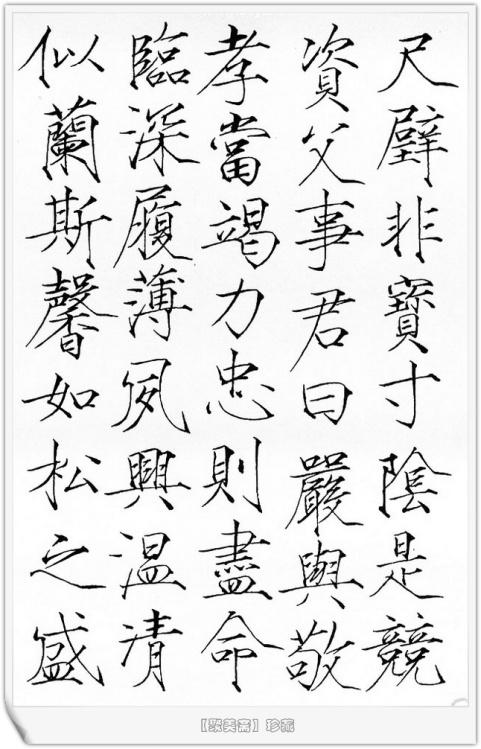 尺璧非寶寸陰是競
資父事君曰嚴與敬
孝當竭力忠則盡命
臨深履薄夙興溫清
似蘭斯馨如松之盛
【聚美斋】珍藏